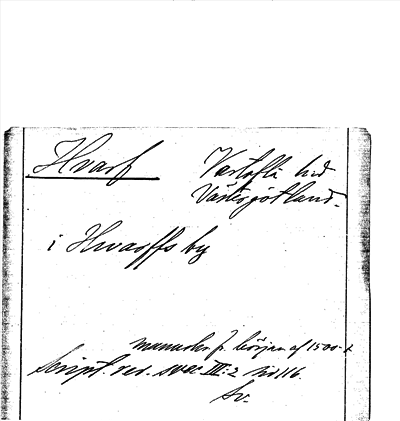 Hvarf
Vartofta hd
Västergötland.
i Hwarffs by
manuskr. fr. början af 1500-t.
Script. rer. svec. III:2 sid 116.
Sv.